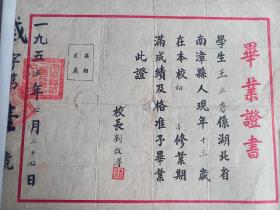 畢業證書
學生王 香係湖北省
南漳縣人現年十三歲
在本校初 修業期
滿成績及格准予畢業
此證
校長劉
一九五五年七月二十四日
字第 號